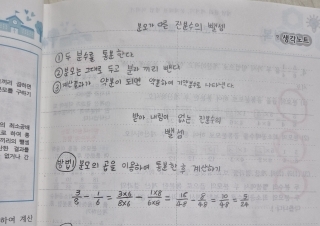 분모가 다른 진분수의 뺄셈
생각노트
① 두 분수를 통분한다
② 분모는 그대로 두고 분자 끼리 뺀다
③ 계산결과가 약분이 되면 약분하여 기약분수로 나타낸다
받아 내림이 없는 진분수의
뺄셈
방법1 분모의 곱을 이용하여 통분한 후 계산하기
3/8 - 1/6 = 3×6/8×6 - 1×8/6×8 = 18/48 - 8/48 = 10/48 = 5/24
하며 계산